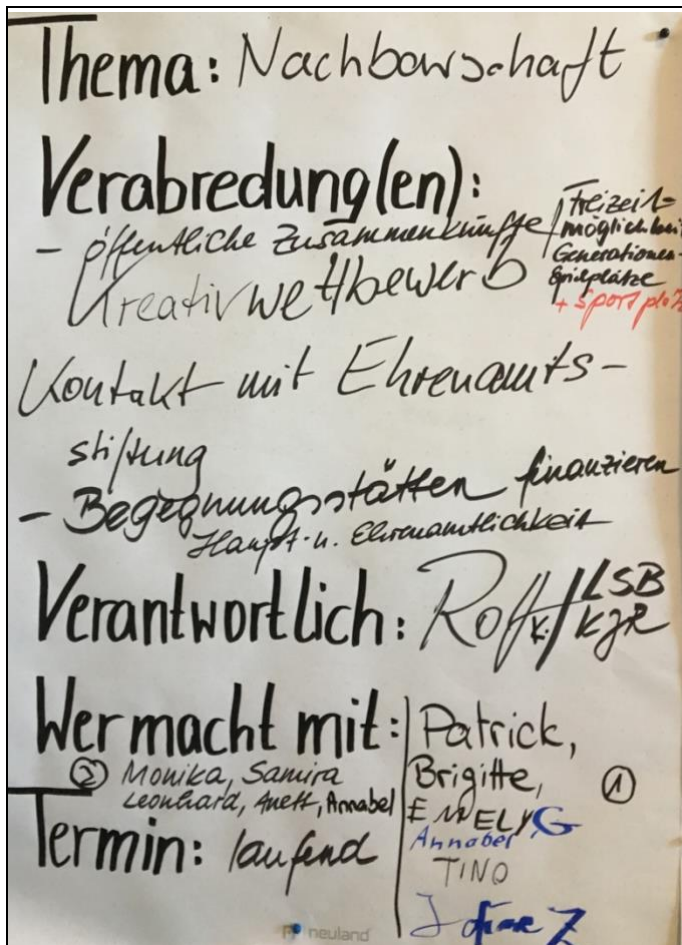 Thema: Nachbarschaft
Verabredung(en):
- öffentliche Zusammenkünfte
Freizeit-
möglichkeit
Generationen-
Spielplätze
+ Sportplätz
Kreativwettbewerb
Kontakt mit Ehrenamts-
stiftung
- Begegnungsstätten finanzieren
Haupt- u. Ehrenamtlichkeit
Verantwortlich: Rolf K. / LSB
KJR
Wer macht mit:
② Monika, Samira
Leonhard, Anett, Annabel
Patrick,
Brigitte,
①
EMELY G
Annabel
TINO
Termin: laufend
neuland